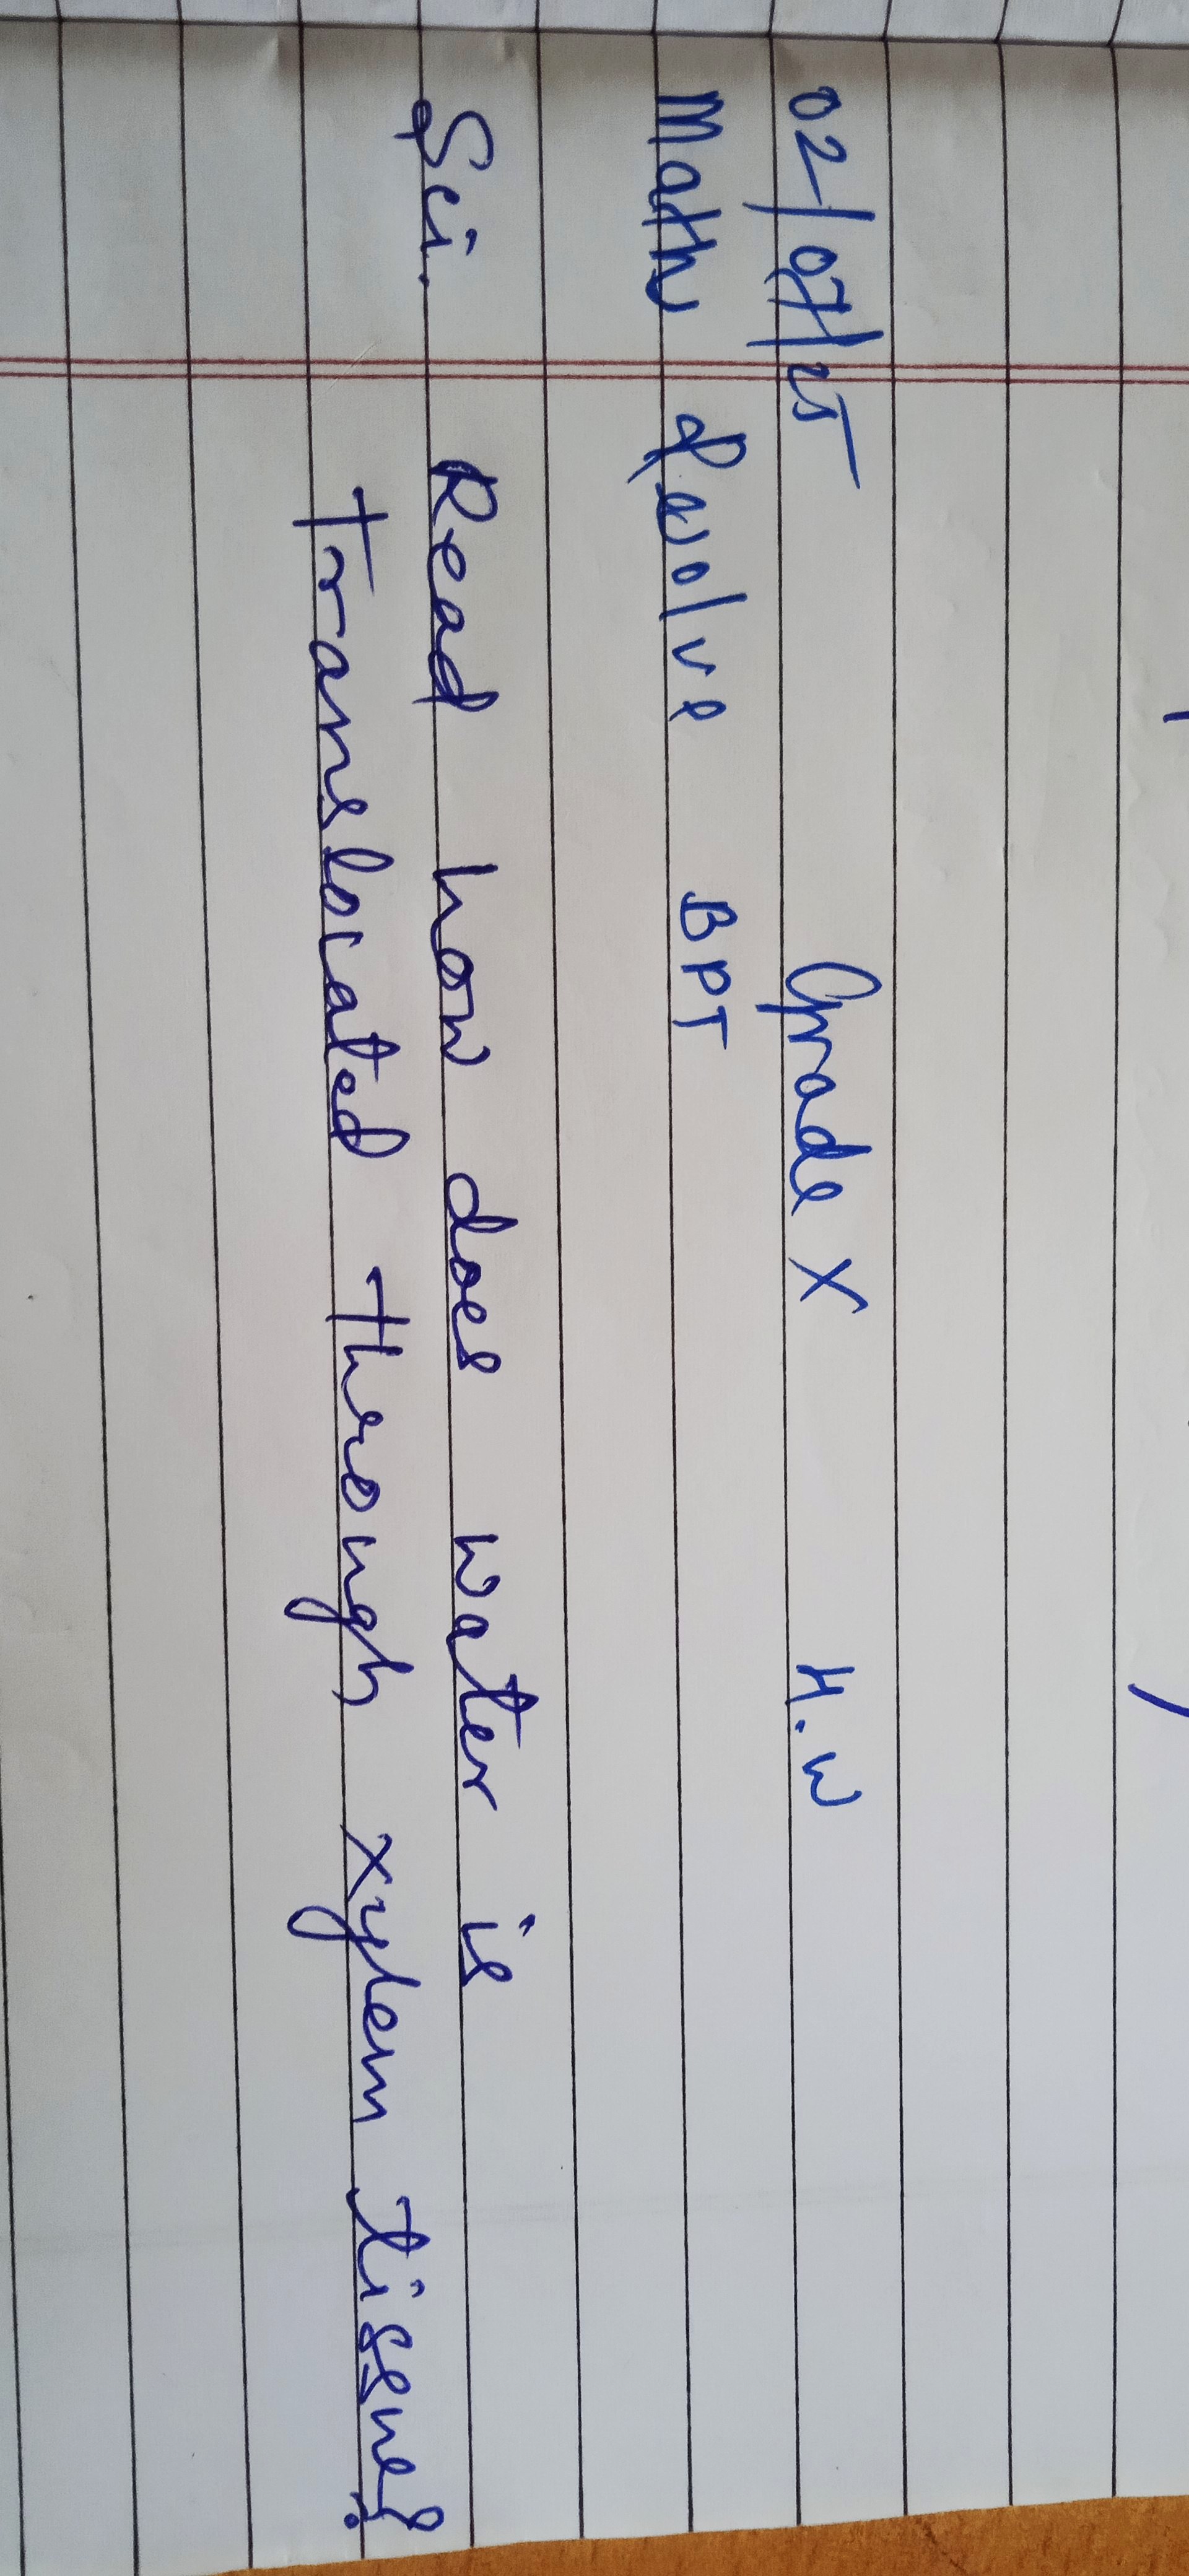 02/07/25 Grade X H.W
Math Resolve BPT
Sci. Read how does water is
translocated through xylem tissue?